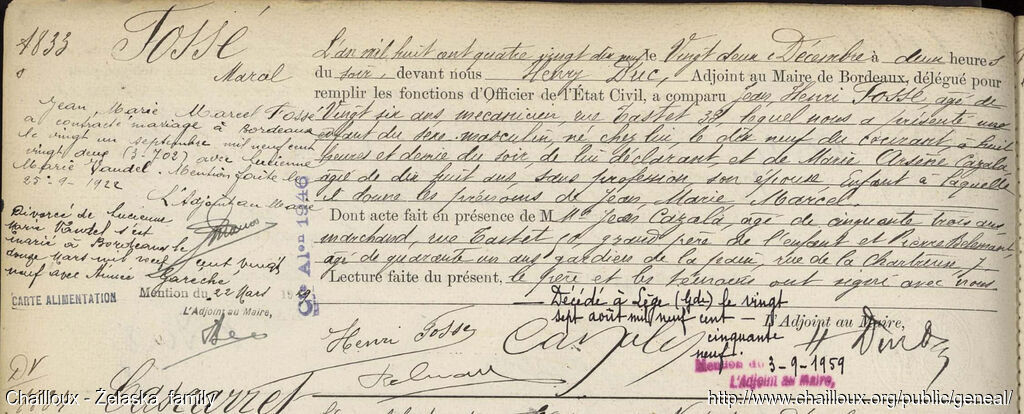 1833
Fossé
Marcel
L'an mil huit cent quatre vingt dix neuf le Vingt deux Décembre à deux heures
du soir, devant nous Henry Duc, Adjoint au Maire de Bordeaux, délégué pour
remplir les fonctions d'Officier de l'État Civil, a comparu Jean Henri Fossé âgé de
Vingt six ans mécanicien, rue Tastet 38 lequel nous a présenté un
enfant du sexe masculin, né chez lui, le dix neuf du courant, à huit
heures et demie du soir de lui déclarant, et de Marie Arsène Cazala
âgée de dix huit ans, sans profession son épouse, Enfant à laquelle
il donne les prénoms de Jean, Marie, Marcel.
Dont acte fait en présence de M Mrs Jean Cazala, âgé de cinquante trois ans
marchand, rue Tastet grand père de l'enfant et Pierre
âgé de quarante un ans gardien de la paix, rue de la Chartreuse 7
Lecture faite du présent, le père et les témoins ont signé avec nous
L'Adjoint au Maire,
Jean Marie Marcel Fossé
a contracté mariage à Bordeaux
le vingt un septembre mil neuf cent
vingt deux (3-702) avec Lucienne
Marie Vandel. Mention faite le
25-9-1922
L'Adjoint au Maire
Divorcé de Lucienne
Marie Vandel s'est
marié à Bordeaux le
douze Mars mil neuf cent vingt
neuf avec Aimée
Gareché
CARTE ALIMENTATION
Mention du 22 Mars
L'Adjoint au Maire,
Cte Alon 1946
Décédé à Lège (Gde) le vingt
sept août mil neuf cent
cinquante
neuf.
Mention du 3-9-1959
L'Adjoint au Maire,
Henri Fossé
Cazala
H Duc
DV
Castarret
Chailloux - Zelaska family
http://www.chailloux.org/public/geneal/